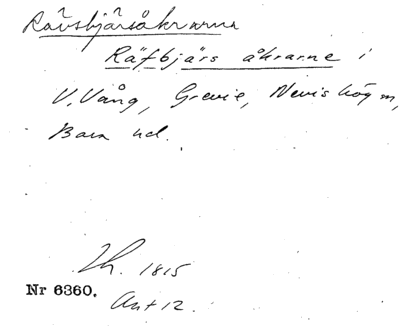 Rävsbjärsåkrarna
Räfbjärs åkrarne i
V. Vång, Grevie, Nevishög m,
Bara hd.
Lh. 1815
Nr 6360.
Ant 12.